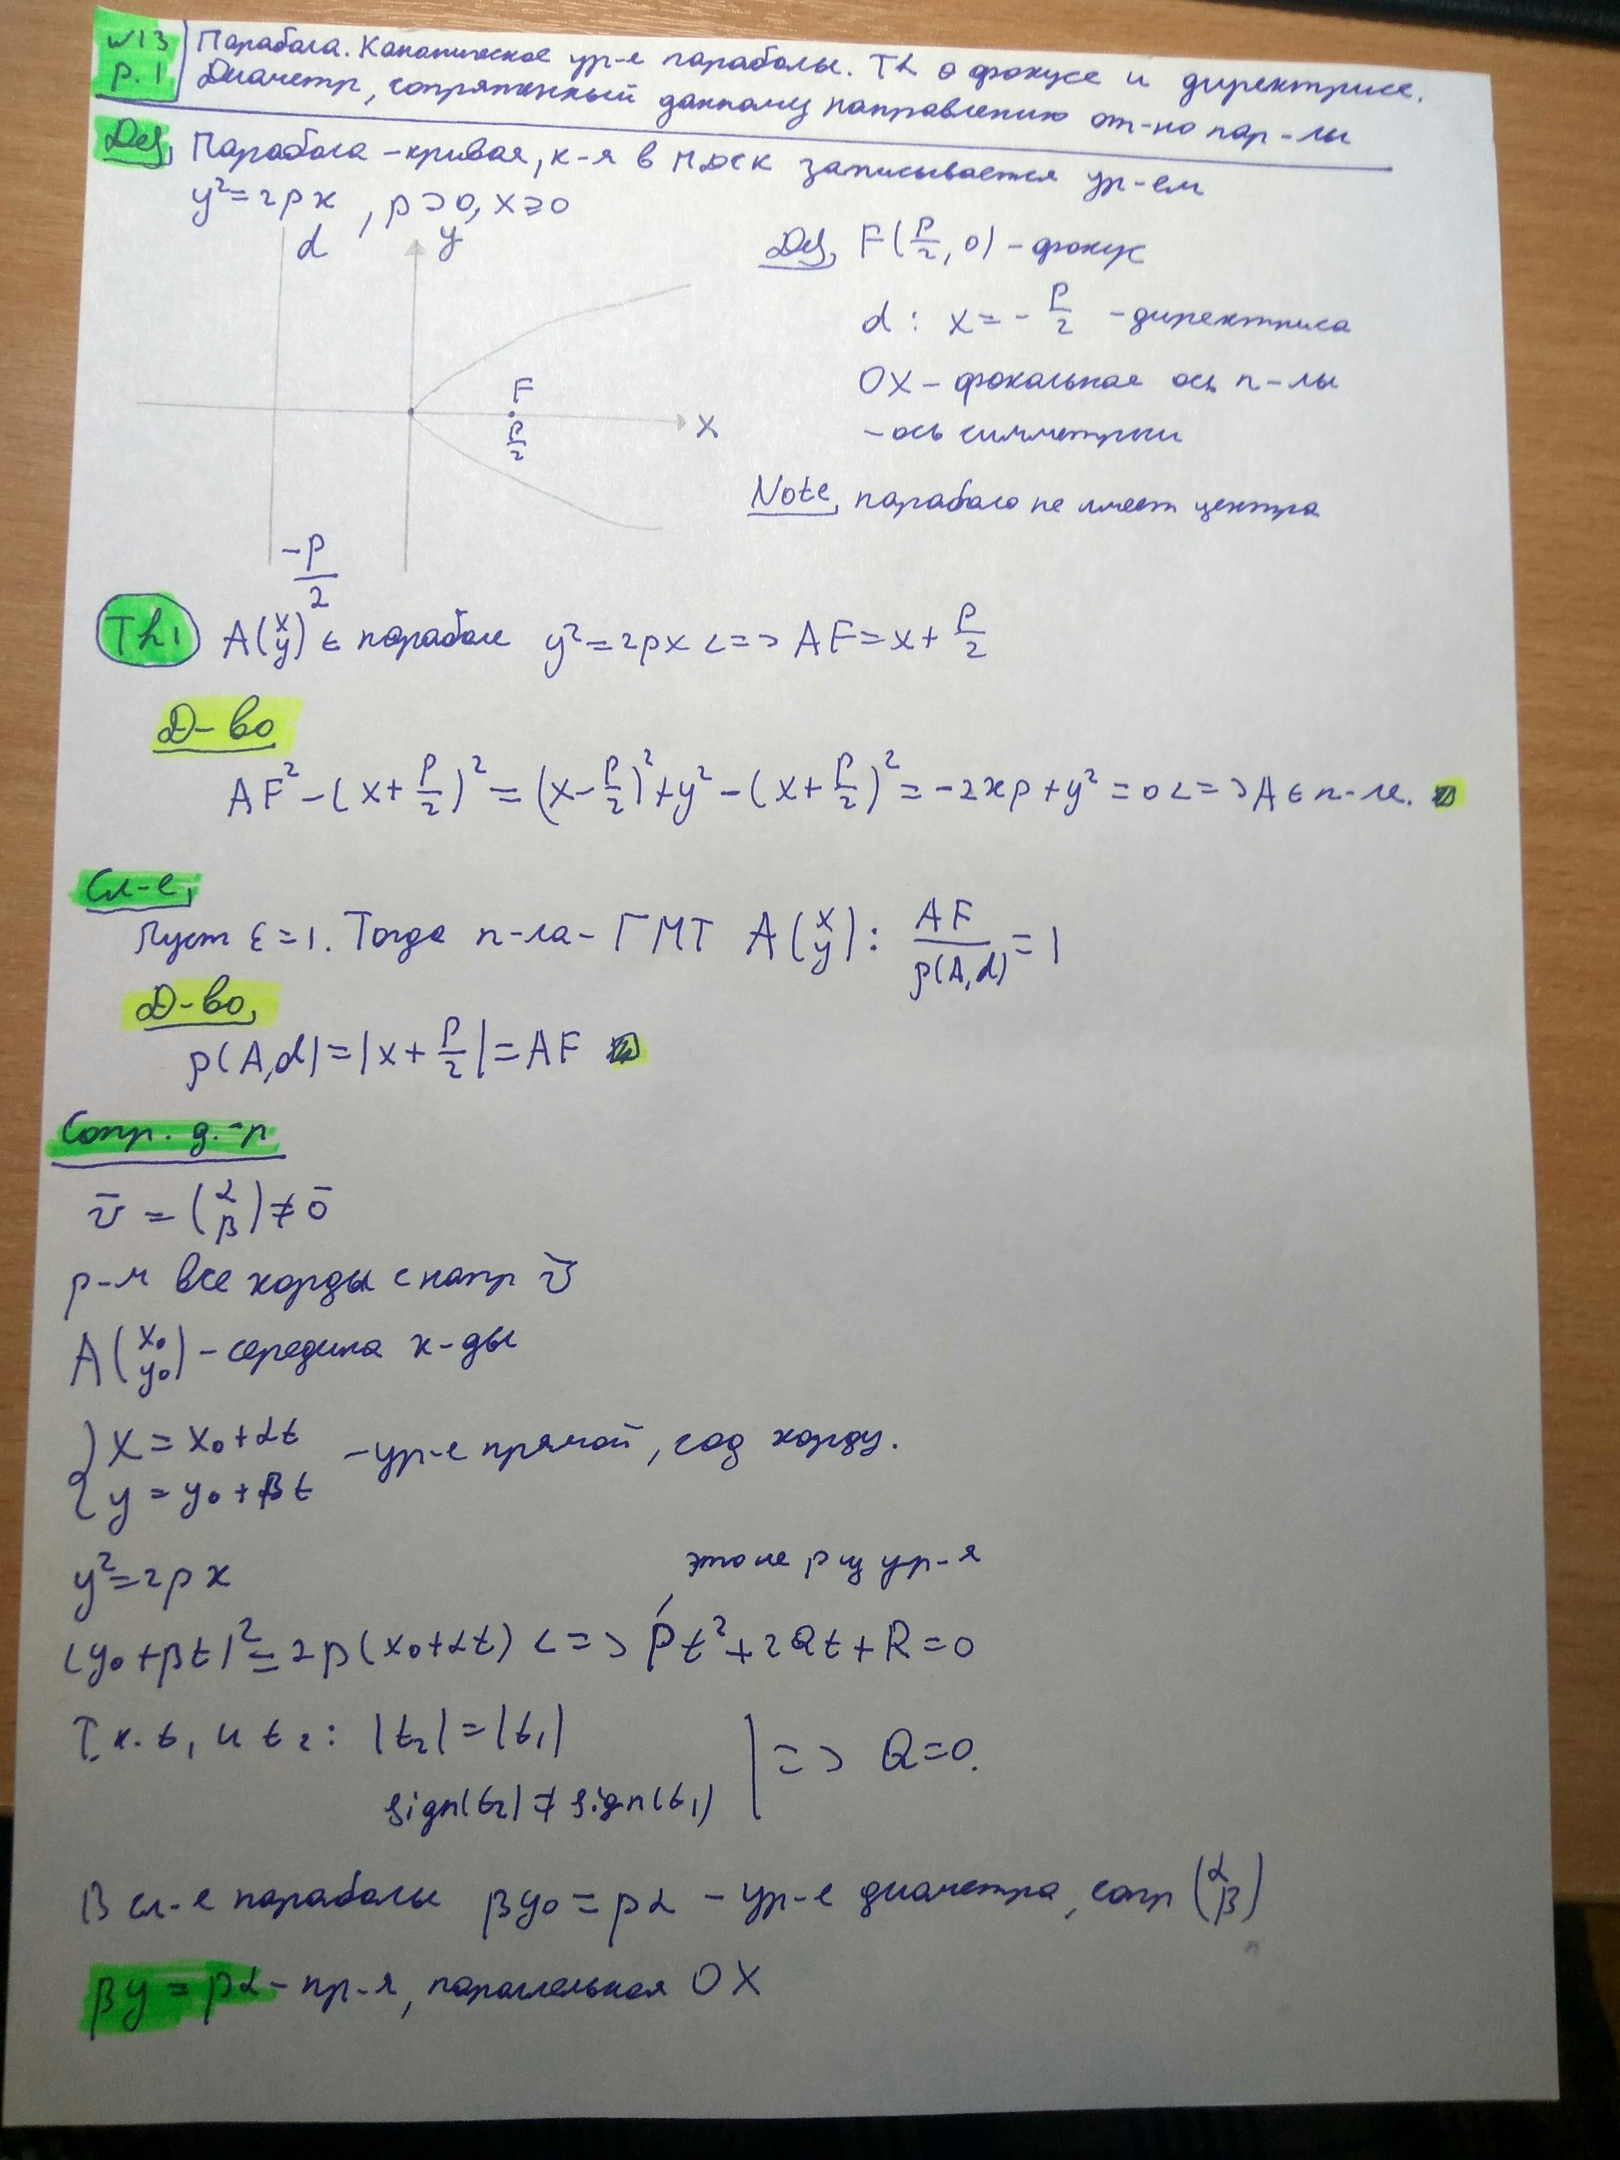 №13 Парабола. Каноническое ур-е параболы. Th о фокусе и директрисе.
p.1 Диаметр, сопряженный данному направлению от-но пар-лы
Def, Парабола - кривая, к-я в ПДСК записывается ур-ем
y² = 2px, p > 0, x ⩾ 0
d y
Def, F(p/2, 0) - фокус
d: x = - p/2 - директриса
OX - фокальная ось п-лы
- ось симметрии
F
p/2
X
Note, парабола не имеет центра
-p/2
Th1 A(x y) ∈ параболе y² = 2px <=> AF = x + p/2
Д-во
AF² - (x + p/2)² = (x - p/2)² + y² - (x + p/2)² = -2xp + y² = 0 <=> A ∈ п-ле.
Сл-е,
Пуст ε = 1. Тогда п-ла - ГМТ A(x y): AF/ρ(A,d) = 1
Д-во,
ρ(A,d) = |x + p/2| = AF
Сопр. д.-р
v̄ = (α β) ≠ 0̄
р-м все хорды с напр v̄
A(x₀ y₀) - середина х-ды
{ x = x₀ + αt
y = y₀ + βt - ур-е прямой, сод хорду.
y² = 2px
это не p из ур-я
(y₀ + βt)² = 2p(x₀ + αt) <=> Pt² + 2Qt + R = 0
Т.к. t₁ и t₂: |t₂| = |t₁|
sign(t₂) ≠ sign(t₁) | => Q = 0.
В сл-е параболы βy₀ = pα - ур-е диаметра, сопр (α β)
βy = pα - пр-я, параллельная OX